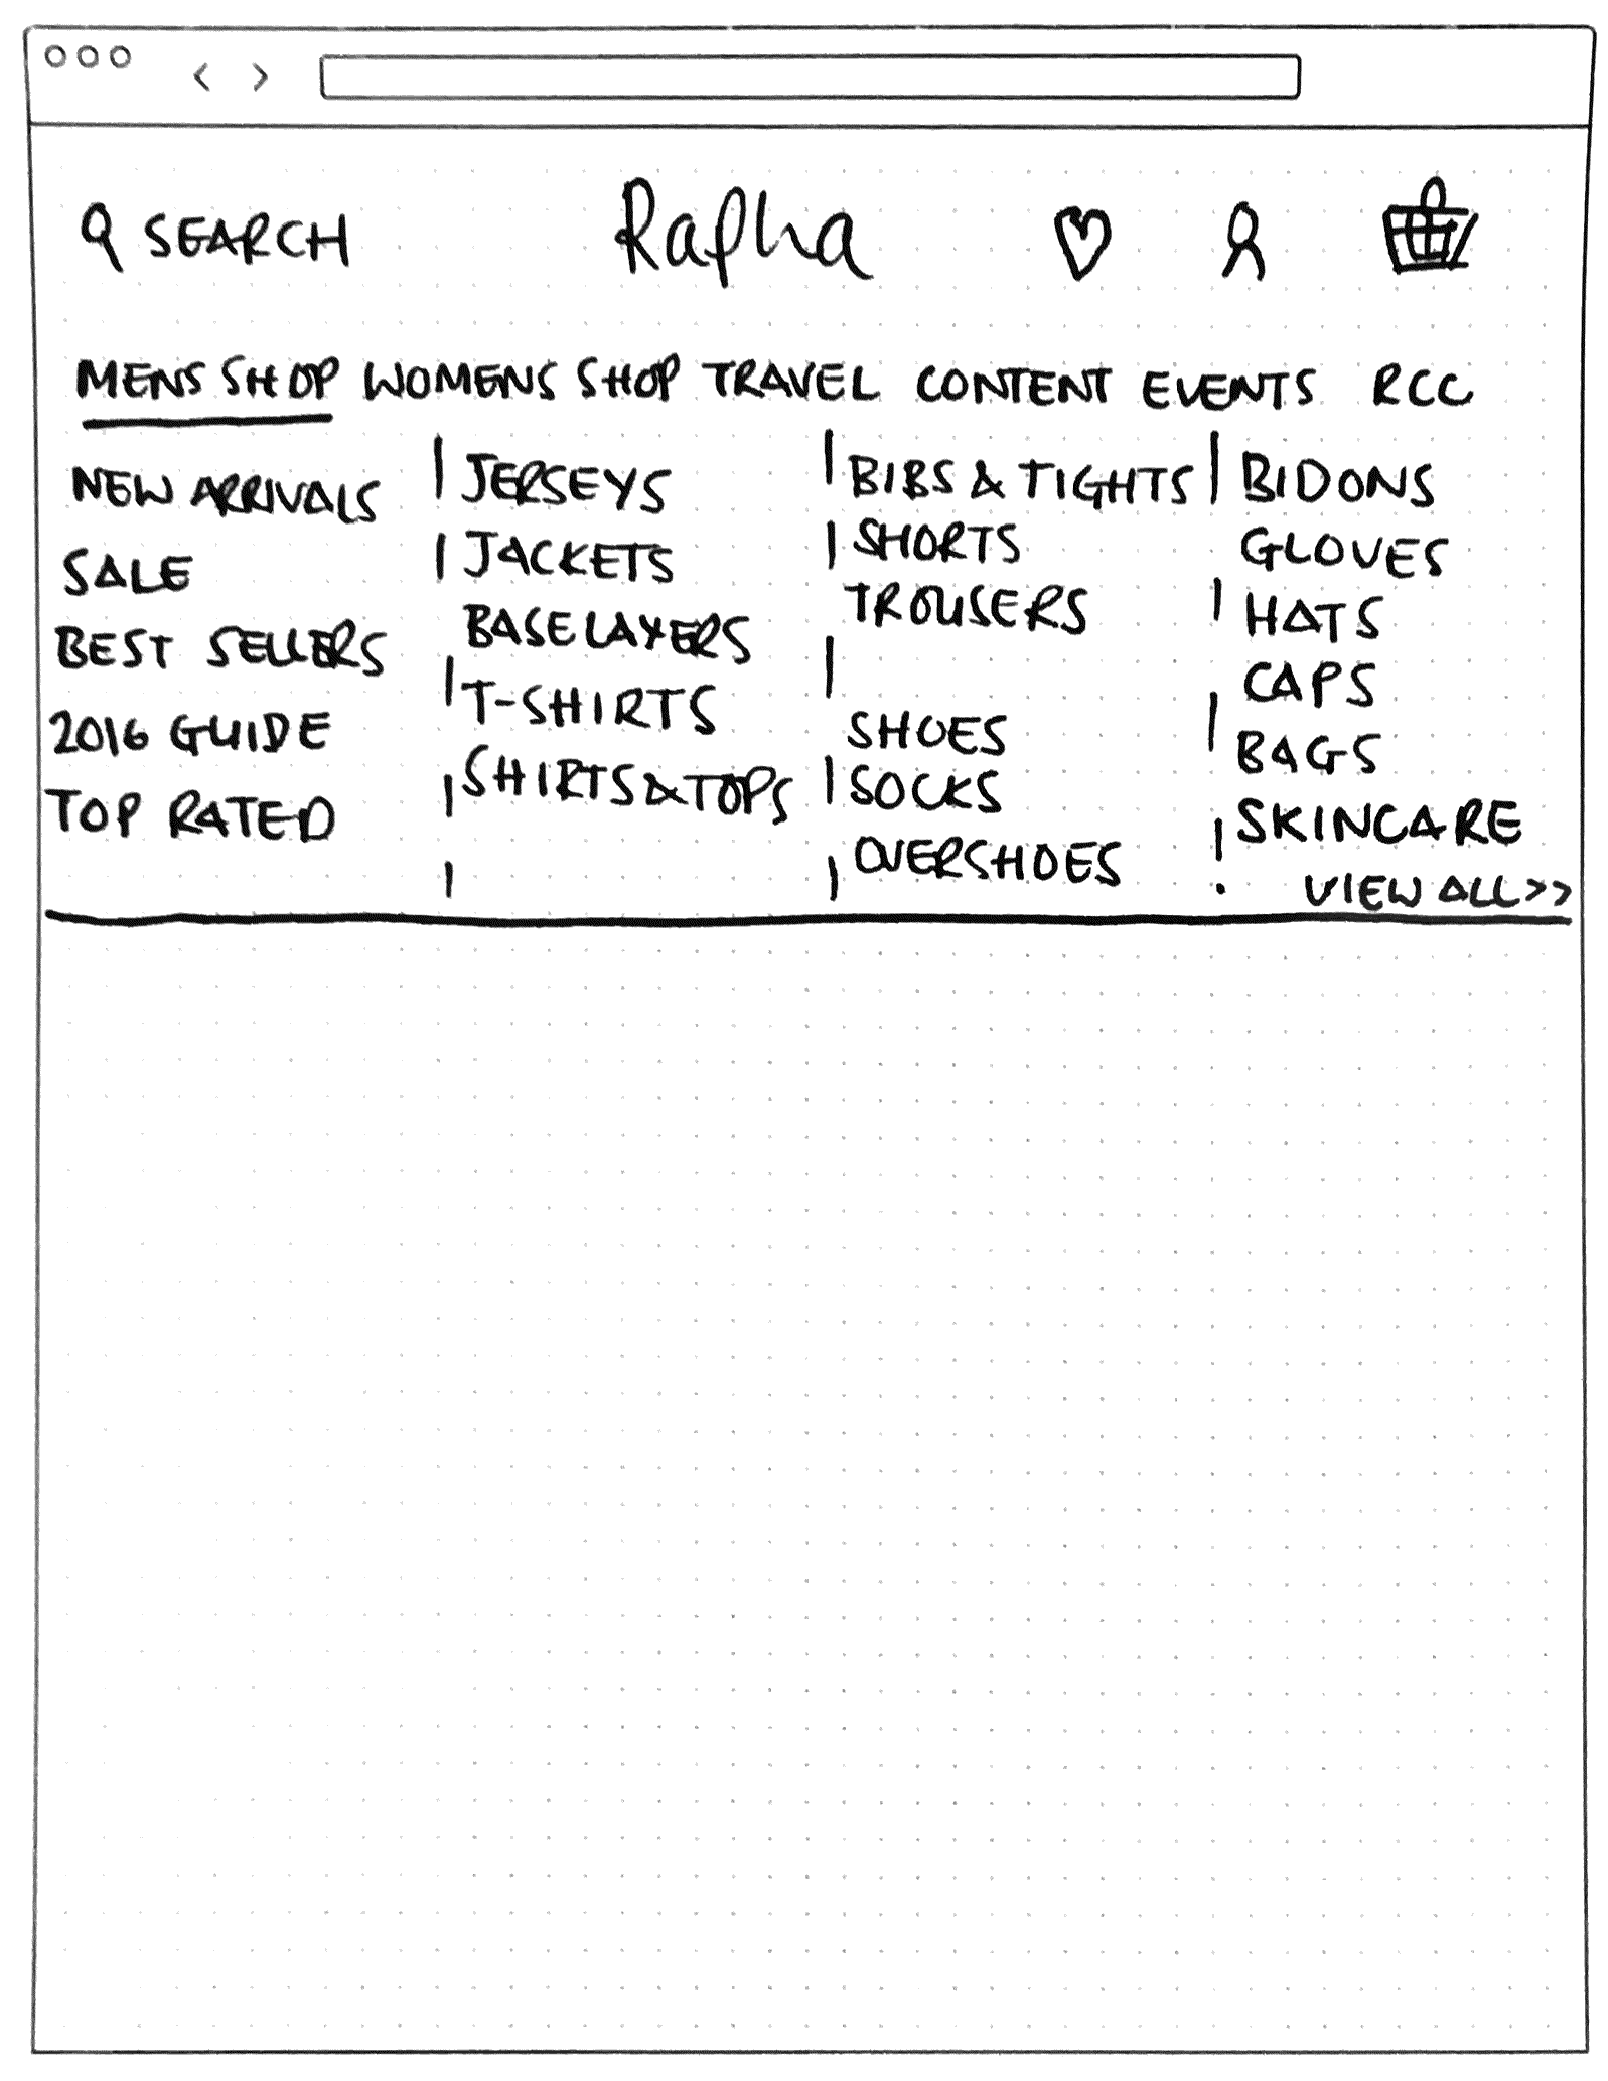 SEARCH
Rapha
MENS SHOP WOMENS SHOP TRAVEL CONTENT EVENTS RCC
NEW ARRIVALS
SALE
BEST SELLERS
2016 GUIDE
TOP RATED
JERSEYS
JACKETS
BASE LAYERS
T-SHIRTS
SHIRTS & TOPS
BIBS & TIGHTS
SHORTS
TROUSERS
SHOES
SOCKS
OVERSHOES
BIDONS
GLOVES
HATS
CAPS
BAGS
SKINCARE
VIEW ALL >>